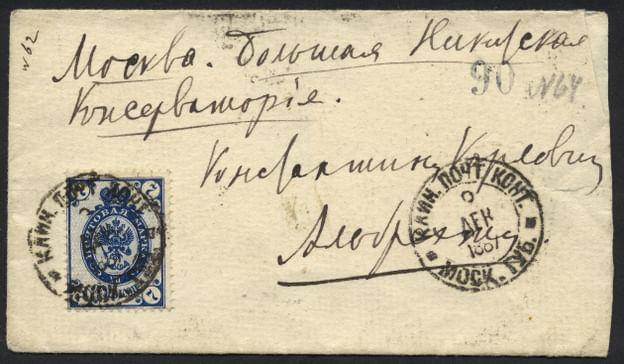 №62
Москва. Большая Никитская
Консерваторія.
90
№64
Константину Карловичу
Альбрехту
КЛИН. ПОЧТ. КОНТ.
ДЕК
1887
МОСК. ГУБ.
КЛИН. ПОЧТ. КОНТ.
7
ПОЧТОВАЯ МАРКА
7